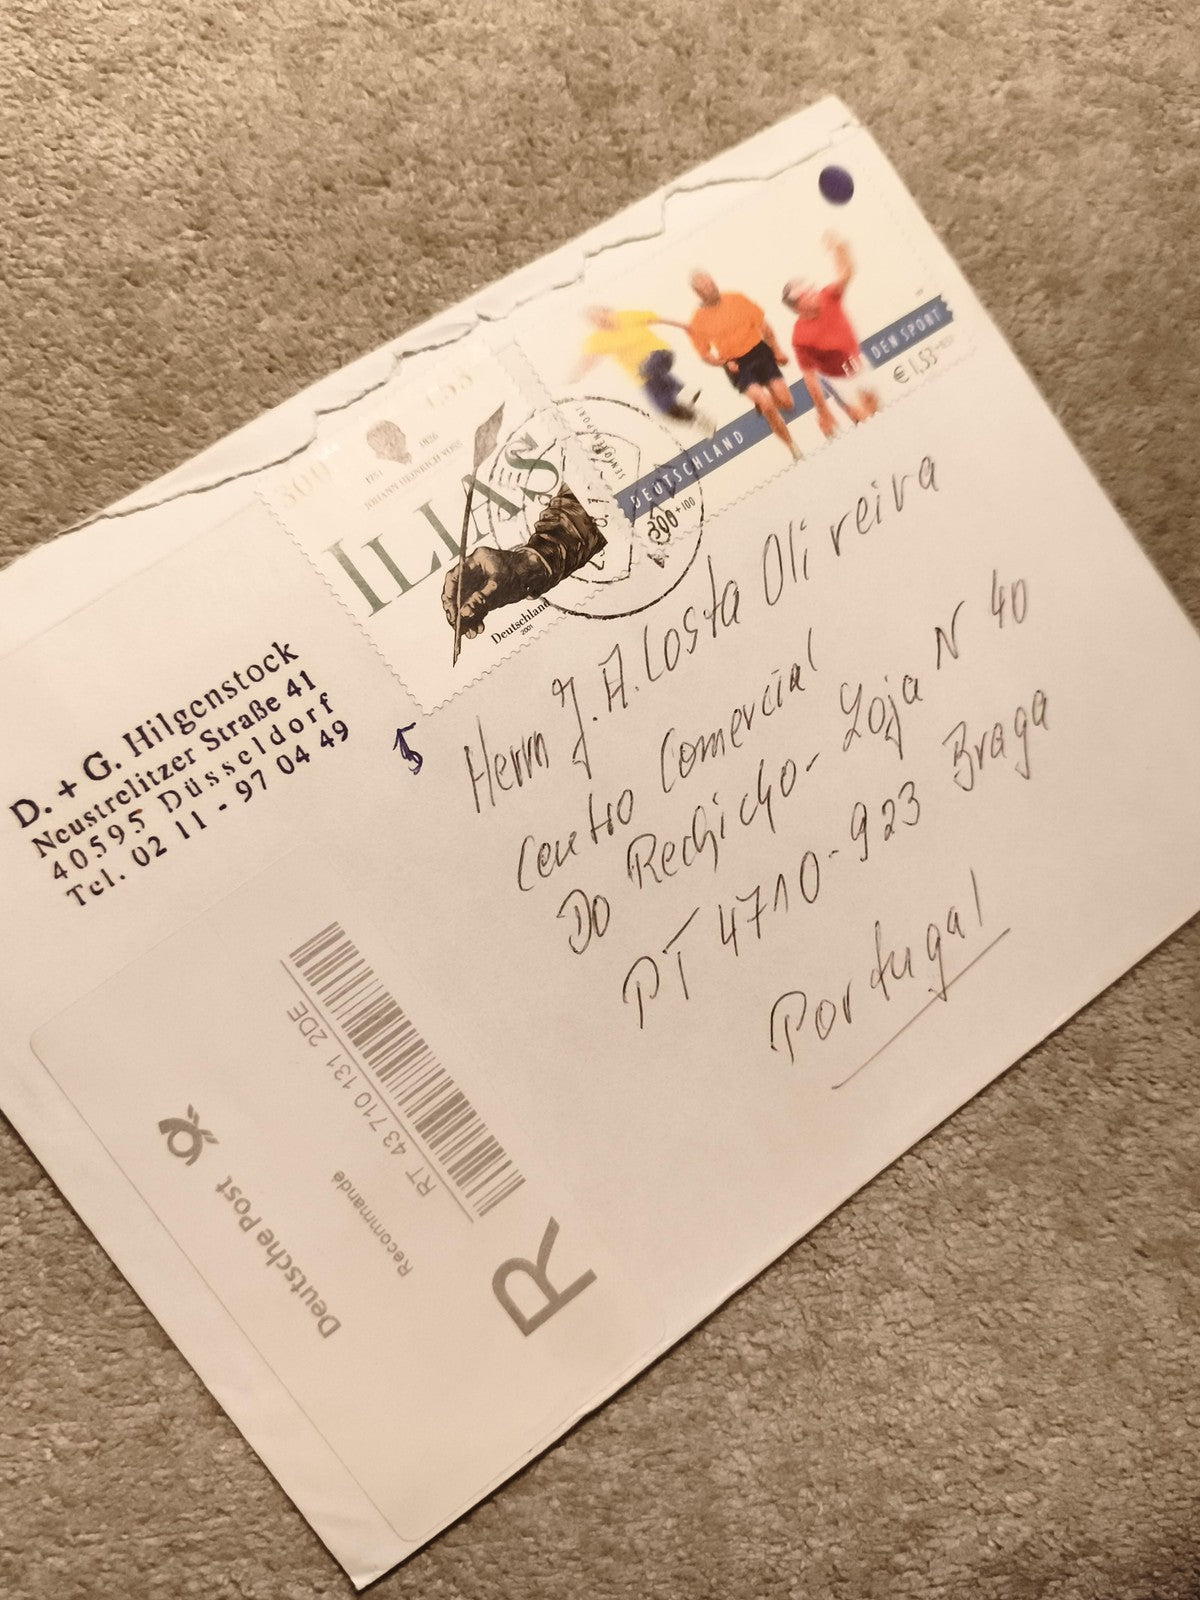 FÜR DEN SPORT
€ 1,53
DEUTSCHLAND
300+100
SENIORENSPORT
300
1751
1826
JOHANN HEINRICH VOSS
ILIAS
Deutschland
2001
D. + G. Hilgenstock
Neustrelitzer Straße 41
40595 Düsseldorf
Tel. 02 11 - 97 04 49
Herrn J. A. Costa Oliveira
Centro Comercial
Do Rechicho- Loja N 40
PT 4710-923 Braga
Portugal
R
RT 43 710 131 2DE
Recommandé
Deutsche Post